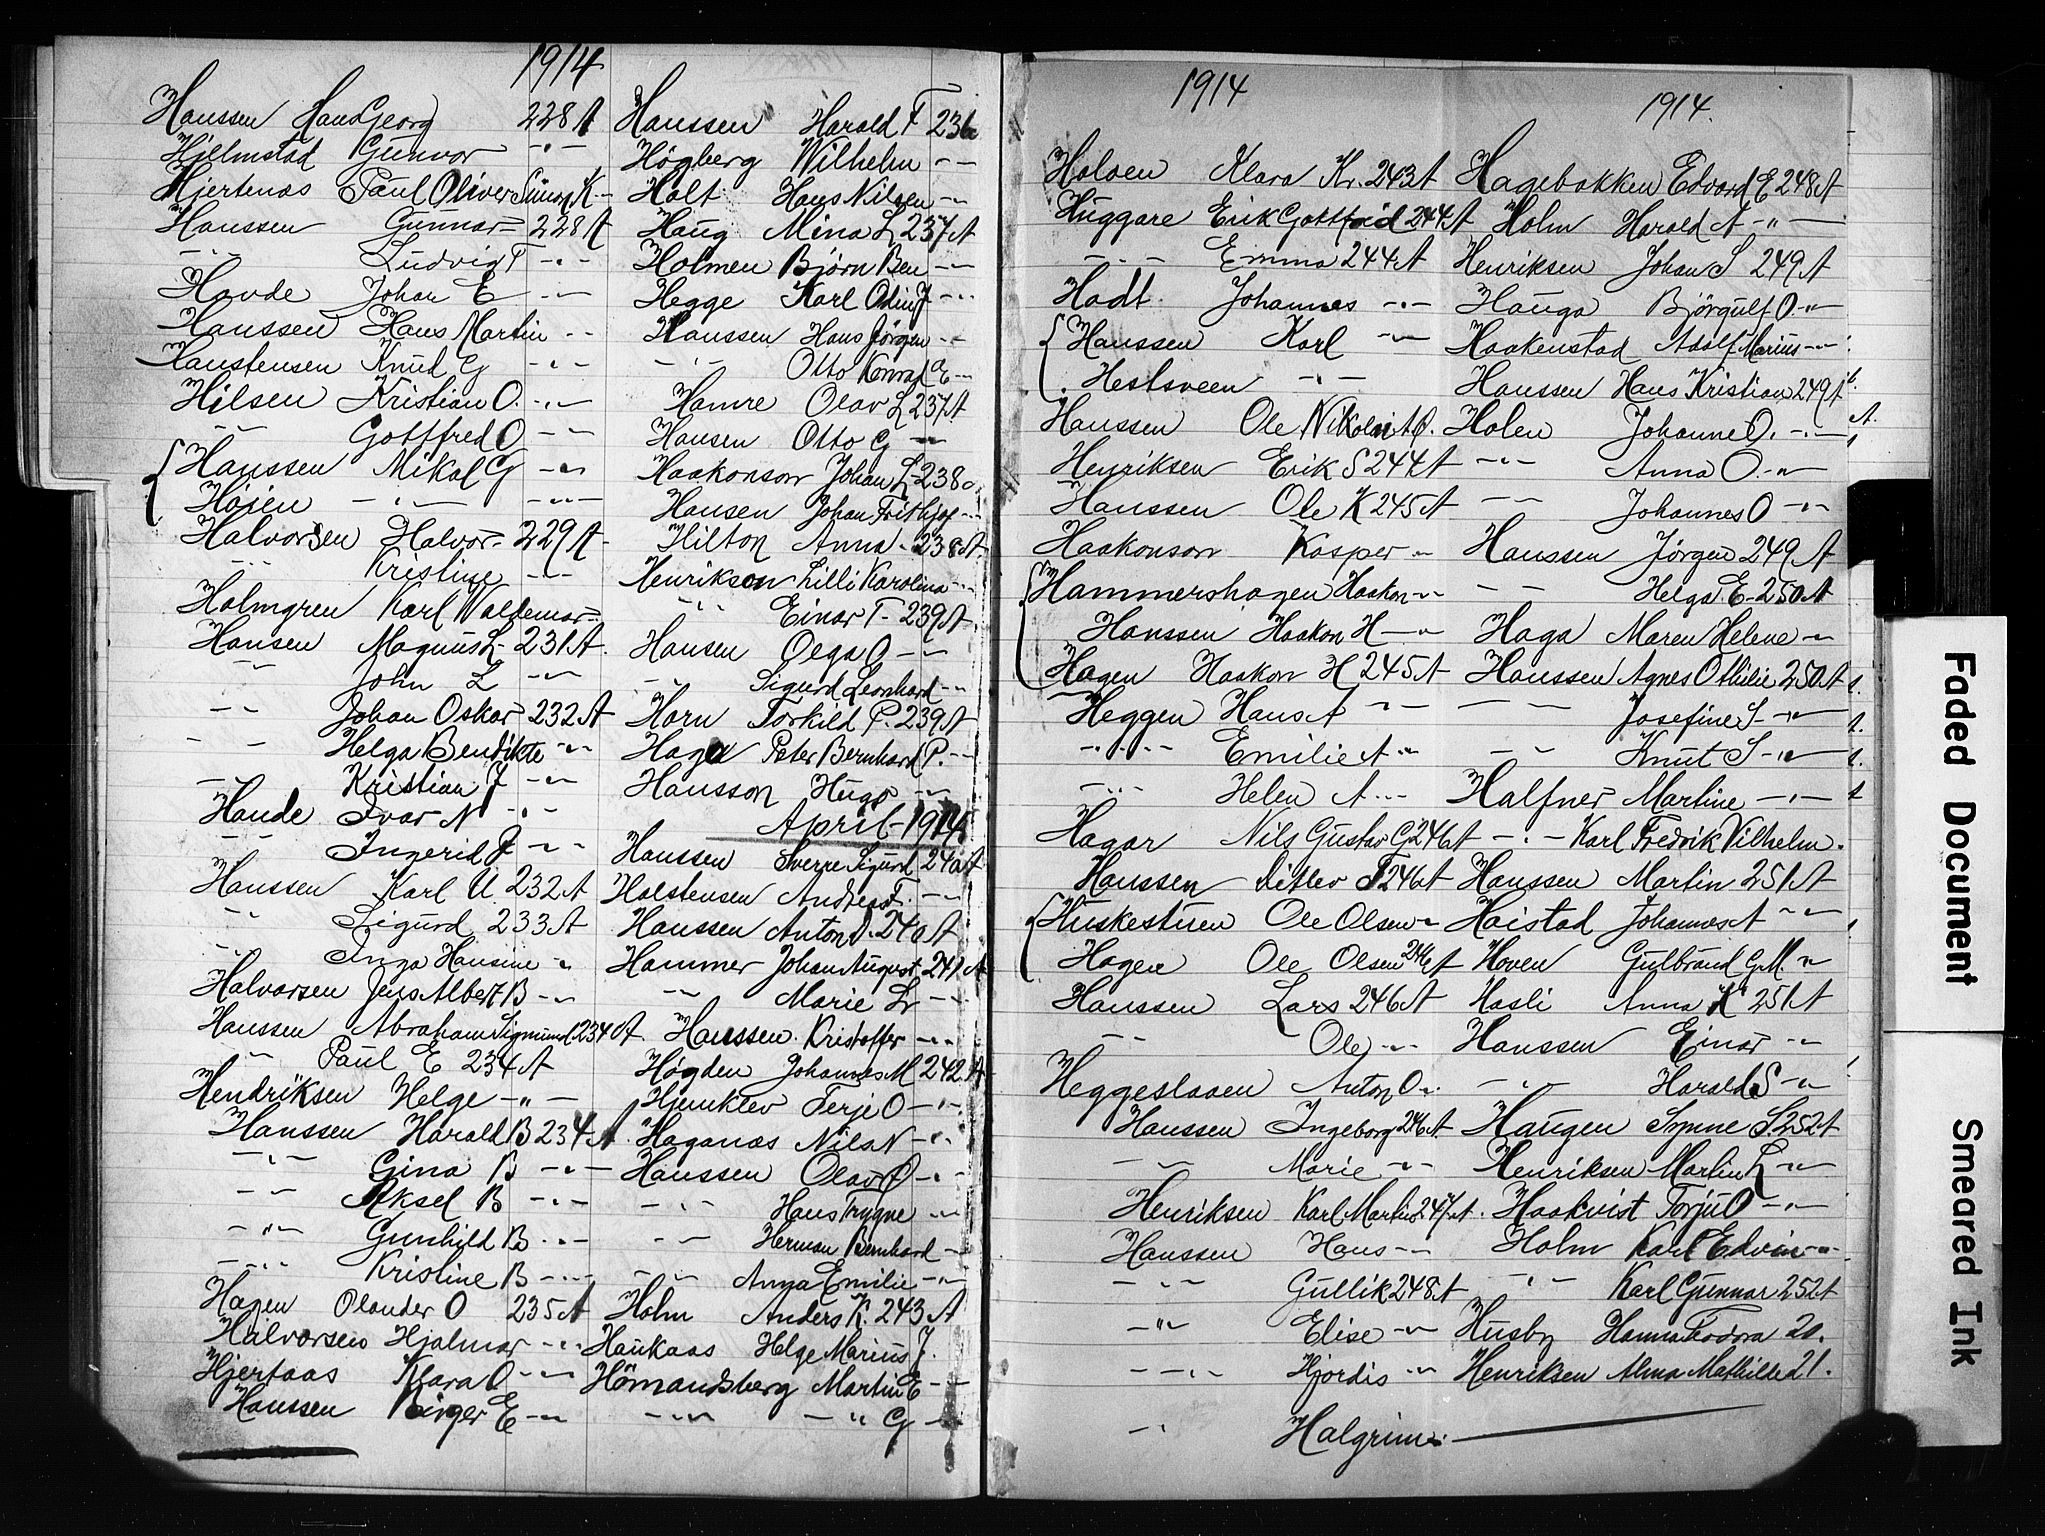 1914
Hanssen Hans Georg 228 A
Hjelmstad Gunvor - " -
Hjertenæs Paul Oliver Simon K -
Hanssen Gunnar - 228 A
- " - Ludvig T - " -
Hovde Johan E - " -
Hanssen Hans Martin - -
Haustensen Knud G - " -
Hilsen Kristian O. - " -
- - Gottfred O - " -
Hanssen Mikal G - " -
Höien - " - - " -
Halvorsen Halvor - 229 A
- " - Kristine - " -
Holmgren Karl Waldemar -
Hansen Magnus L - 231 A.
- " - John L - " -
- " - Johan Oskar 232 A
- - Helga Bendikte - " -
- " - Kristian J - " -
Haude Ivar N - " -
- - Ingerid J - " -
Hanssen Karl U 232 A
- " - Sigurd 233 A
- " - Inga Hansine - "
Halvorsen Jens Albert B - " -
Hanssen Abraham Sigmund 234 A
- " - Paul E 234 A
Hendriksen Helge - " -
Hanssen Harald B 234 A
- " - Gina B - " -
- " - Aksel B - " -
- " - Gunhild B - " -
- " - Kristine B - " -
Hagen Olander O 235 A
Halvorsen Hjalmar - " -
Hjertaas Klara O - " -
Hanssen Birger E - " -
Hanssen Harald F 236
Högberg Wilhelm - -
Holt Hans Nilsen - "
Haug Mina L 237 A
Holmen Björn Ben - -
Hegge Karl Odin J - " -
Hanssen Hans Jörgen - -
- " - Otto Konrad E - -
Hamre Olav L 237 A
Hansen Otto G - " -
Haakonson Johan L 238
Hansen Johan Frithjof - " -
Hilton Anna - 238 A
Henrikson Lilli Karolina - " -
- " - Einar T - 239 A
Hansen Olga O - " -
- " - Sigurd Leonhard - " -
Horn Torkild P. 239 A
Haga Peter Bernhard P. - -
Hansson Hugo - " -
April - 1914
Hanssen Sverre Sigurd 240 A
Holstensen Andreas F. - " -
Hanssen Anton D. 240 A
Hammer Johan August 241 A
- " - Marie L - " -
Hanssen Kristoffer - " -
Högden Johannes M 242 A
Hjemklev Terje O - " -
Haganæs Nils N - " -
Hanssen Olav O - " -
- " - Hans Trygve - " -
- " - Herman Bernhard -
- " - Anna Emilie - " -
Holm Anders K. 243 A
Haukaas Helge Marius J.
Hömandsberg Martin E - -
- " - - " G -
1914
Holoen Klara Kr. 243 A
Huggare Erik Gottfrid 244 A
- " - Emma 244 A
Hodt. Johannes - " -
Hanssen Karl - " -
Hestsveen - " -
Hanssen Ole Nikolai A O.
Henriksen Erik S 244 A
Hanssen Ole K 245 A
Haakonson Kasper - "
Hammershagen Haakon - " -
Hanssen Haakon H - "
Hagen Haakon H 245 A
Heggen Hans A - " -
- " - Emilie A - "
- " - Helen A - " -
Hagar Nils Gustav G 246 A
Hanssen Ditlev F 246 A
Huskestuen Ole Olsen - "
Hagen Ole Olsen 246 A
Hanssen Lars 246 A
- " - Ole - " -
Heggeslaaen Anton O - " -
Hanssen Ingeborg 246 A
- " - Marie - " -
Henriksen Karl Martin 247 A.
Hanssen Hans - " -
- " - Gullik 248 A
- " - Elise - " -
- " - Hjördis - "
- " Halgrim - " -
1914.
Hagebakken Edvard E 248 A
Holm Harald A - " -
Henriksen Johan S 249 A
Hauga Björgulf O - " -
Haakenstad Adolf Marius - " -
Hanssen Hans Kristian 249 A
Holen Johanne O. - " -
- " - Anna O. - "
- - Johannes O - " -
Hanssen Jörgen 249 A
- - Helga E - 250 A
Haga Maren Helene - "
Hanssen Agnes Othilie 250 A
- - Josefine S - " -
- " - Knut S - " -
Halfner Martine - " -
- " - Karl Fredrik Vilhelm.
Hanssen Martin 251 A
Haistad Johannes A - " -
Hoven Gulbrand G. M. - "
Hasli Anna K 251 A
Hanssen Einar - " -
- " - Harald S - " -
Haugen Synne S. 252 A
Henriksen Martin L - " -
Haakvist Torju O - " -
Holm Karl Edvin - " -
- " - Karl Gunnar 252 A
Husby Hanna Teodora 20.
Henriksen Alma Mathilde 21.
Faded Document
Smeared Ink